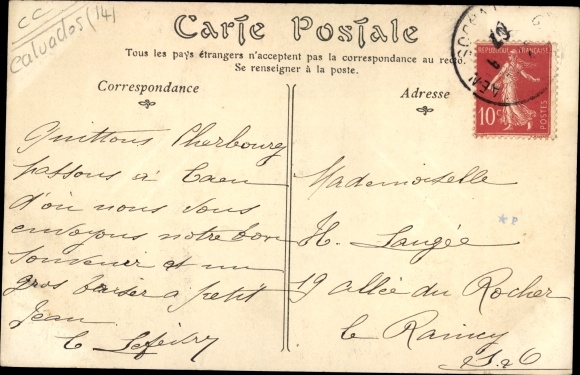 CC
Calvados (14)
Carte Postale
Tous les pays étrangers n'acceptent pas la correspondance au recto.
Se renseigner à la poste.
Correspondance
Adresse
REPUBLIQUE FRANÇAISE
10c
POSTES
Quittons Cherbourg
passons à Caen
d'où nous vous
envoyons notre bon
souvenir et un
gros baiser a petit
Jean
Mademoiselle
H. Laugée
19 allée du Rocher
le Raincy
S. & O